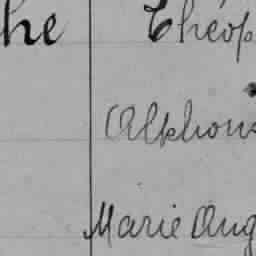 he Théop
Alphons
Marie Aug